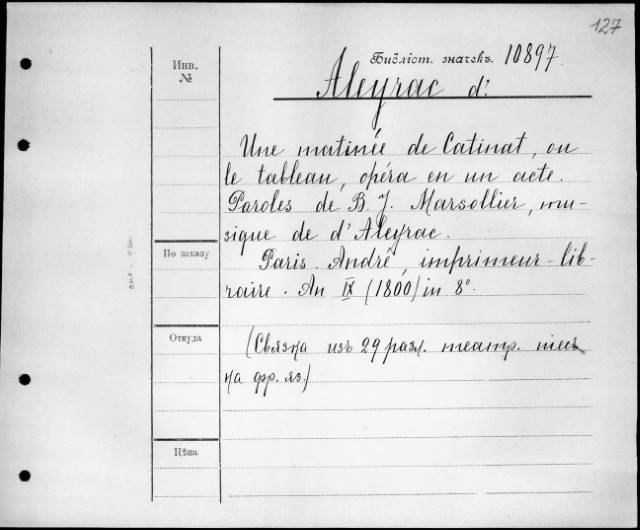 127
Инв.
№
Библіот. значекъ. 10897.
Aleyrac d'.
Une matinée de Catinat, ou
le tableau, opéra en un acte.
Paroles de B. J. Marsollier, mu-
sique de d'Aleyrac.
По заказу
Paris. André, imprimeur-lib-
raire. An IX (1800) in 8°.
Откуда
(Связка изъ 29 разл. театр. пьес
на фр. яз.)
Цѣна